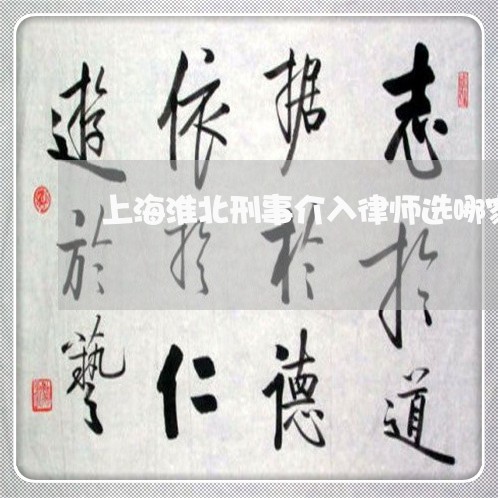 志於道
据於德
依於仁
遊於藝
上海淮北刑事介入律师选哪